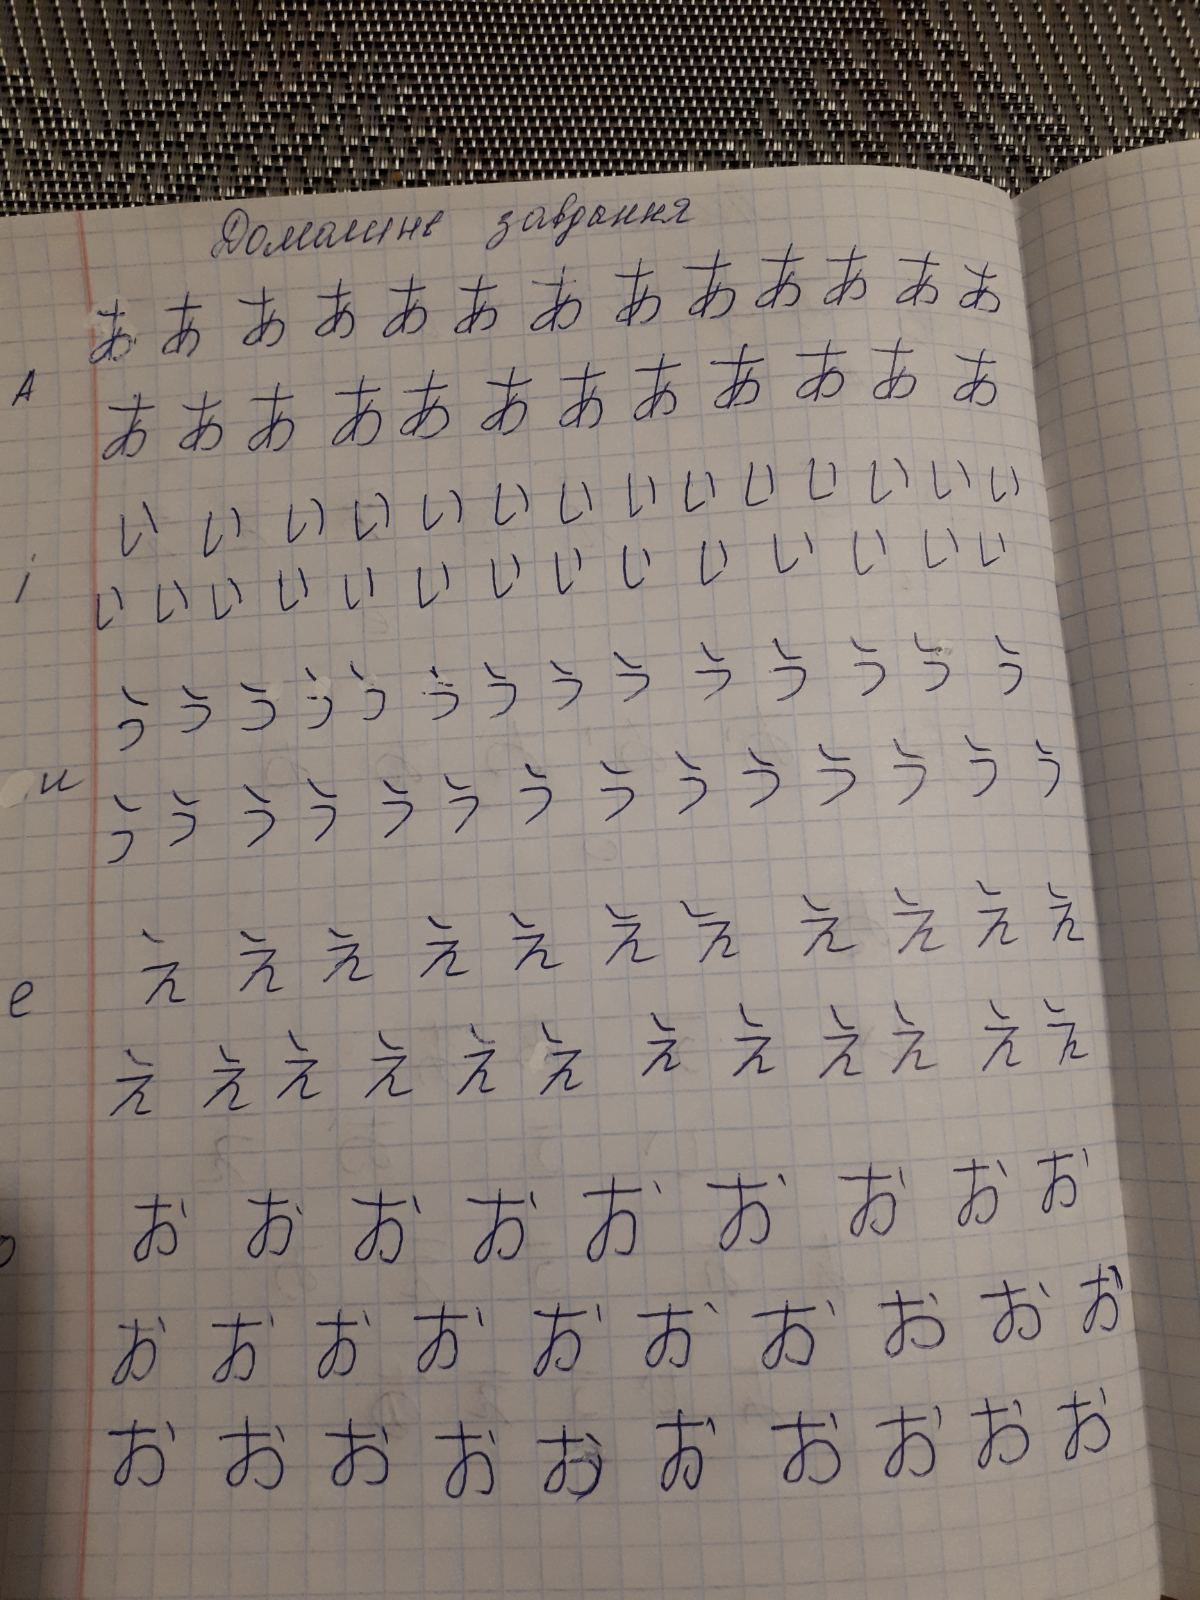 Домашнє завдання
あ あ あ あ あ あ あ あ あ あ あ あ あ
A
あ あ あ あ あ あ あ あ あ あ あ あ
い い い い い い い い い い い い い い
i
い い い い い い い い い い い い い い
う う う う う う う う う う う う う う
u
う う う う う う う う う う う う う う
え え え え え え え え え え え
e
え え え え え え え え え え え え
お お お お お お お お お
o
お お お お お お お お お お
お お お お お お お お お お